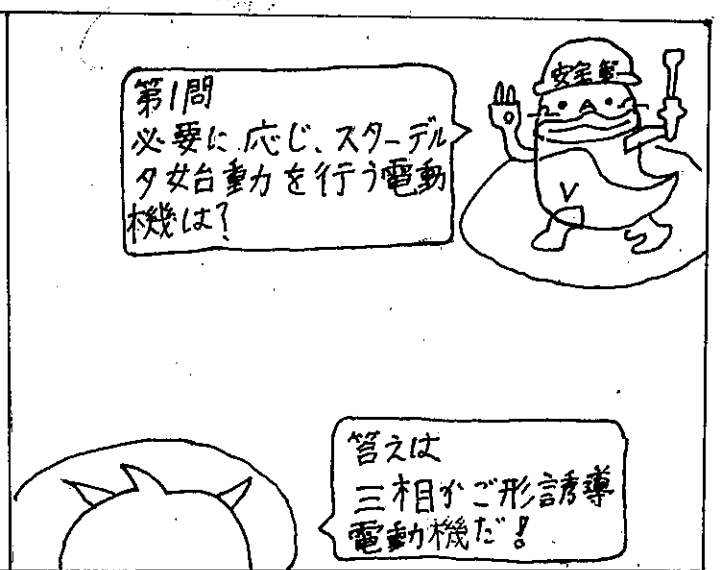 第1問
必要に応じ、スターデル
タ始動を行う電動
機は?
V
答えは
三相かご形誘導
電動機だ!